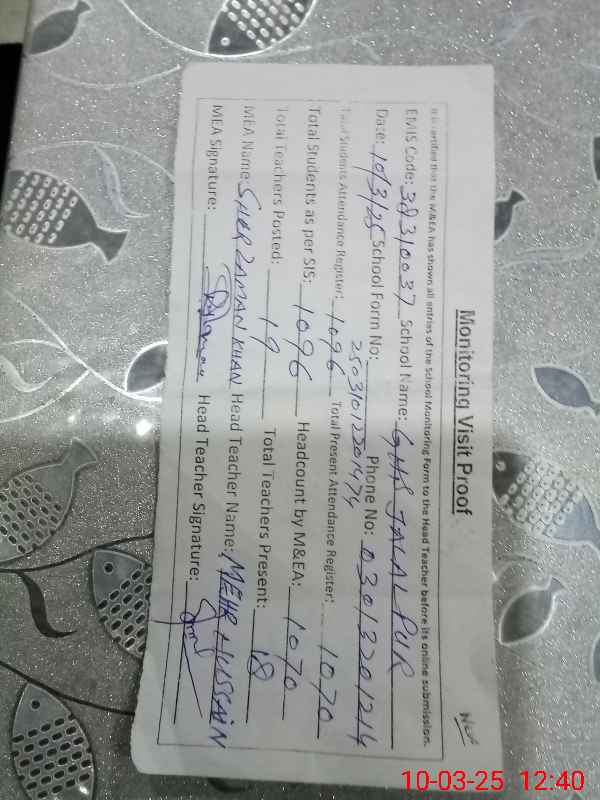 Monitoring Visit Proof
It is certified that the M&EA has shown all entries of the School Monitoring Form to the Head Teacher before its online submission.
EMIS Code: 38310037 School Name: GHS JALALPUR
Date: 10/3/25 School Form No: 25031012201474 Phone No: 03013201214
Total Students Attendance Register: 1096 Total Present Attendance Register: 1070
Total Students as per SIS: 1096 Headcount by M&EA: 1070
Total Teachers Posted: 19 Total Teachers Present: 18
MEA Name: SHER ZAMAN KHAN Head Teacher Name: MEHR HUSSAIN
MEA Signature: Head Teacher Signature:
10-03-25 12:40